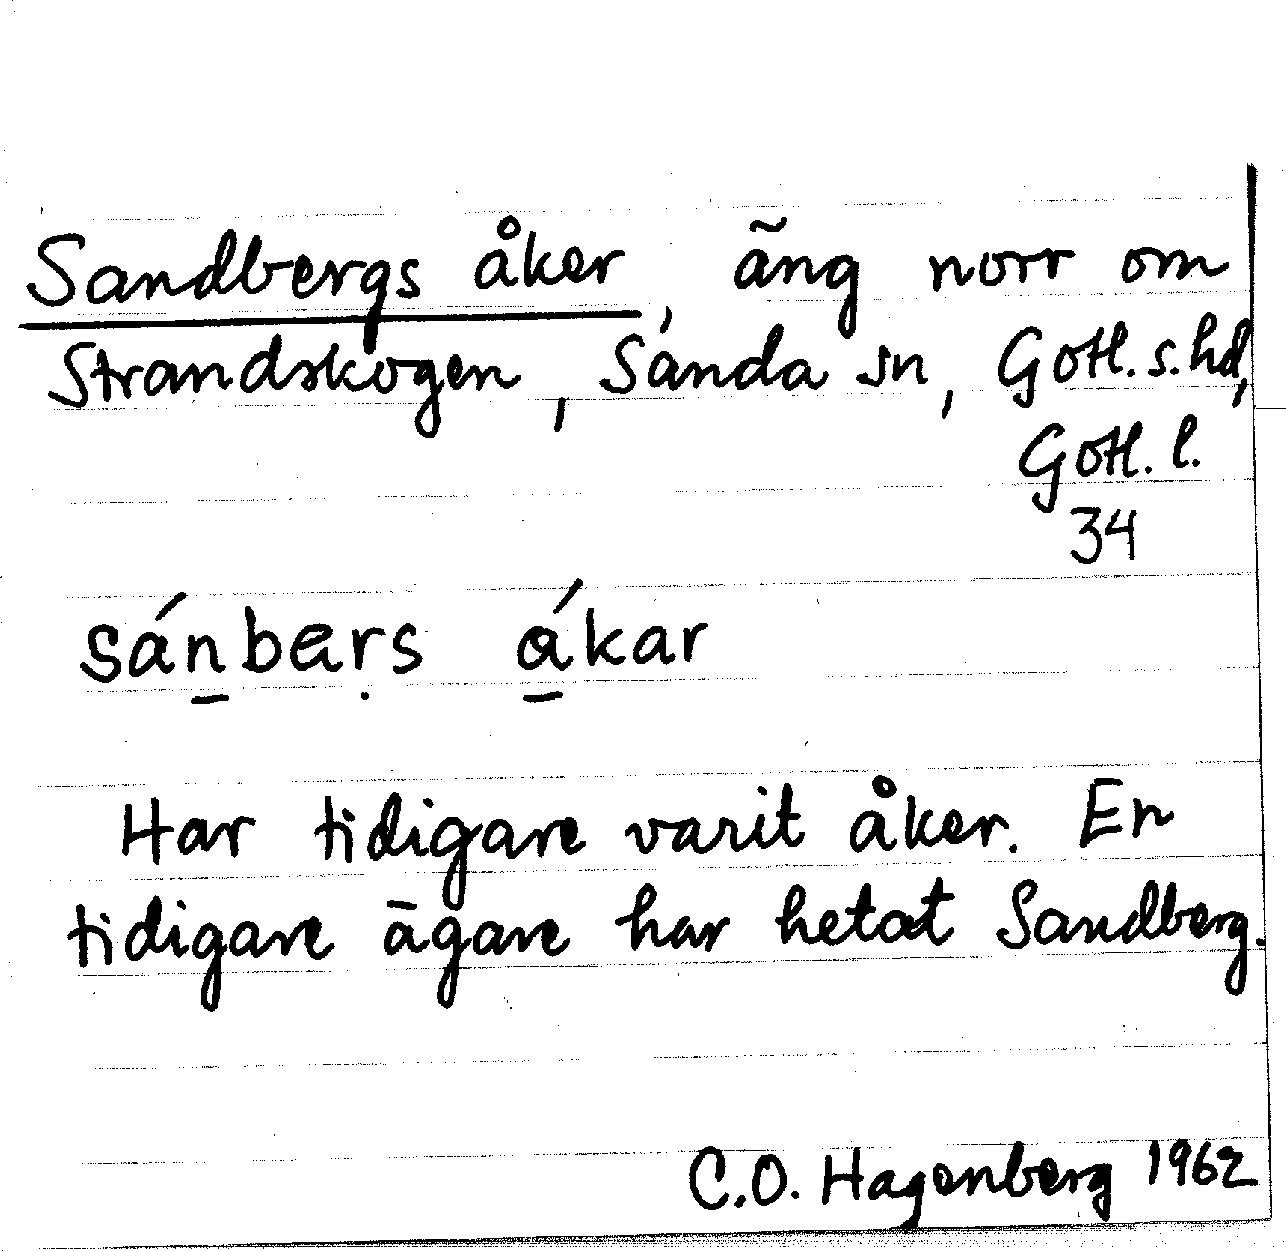 Sandbergs åker, äng norr om
Strandskogen, Sanda sn, Gotl. s. hd,
Gotl. l.
34
sán̠bœrṣ á̠kar
Har tidigare varit åker. En
tidigare ägare har hetat Sandberg.
C.O. Hagenberg 1962